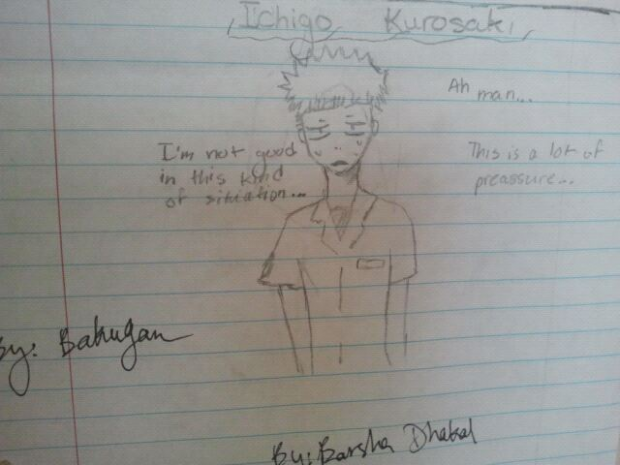 Ichigo Kurosaki
Ah man...
I'm not good
in this kind
of situation...
This is a lot of
preassure...
By: Bakugan
By: Barsha Dhakal